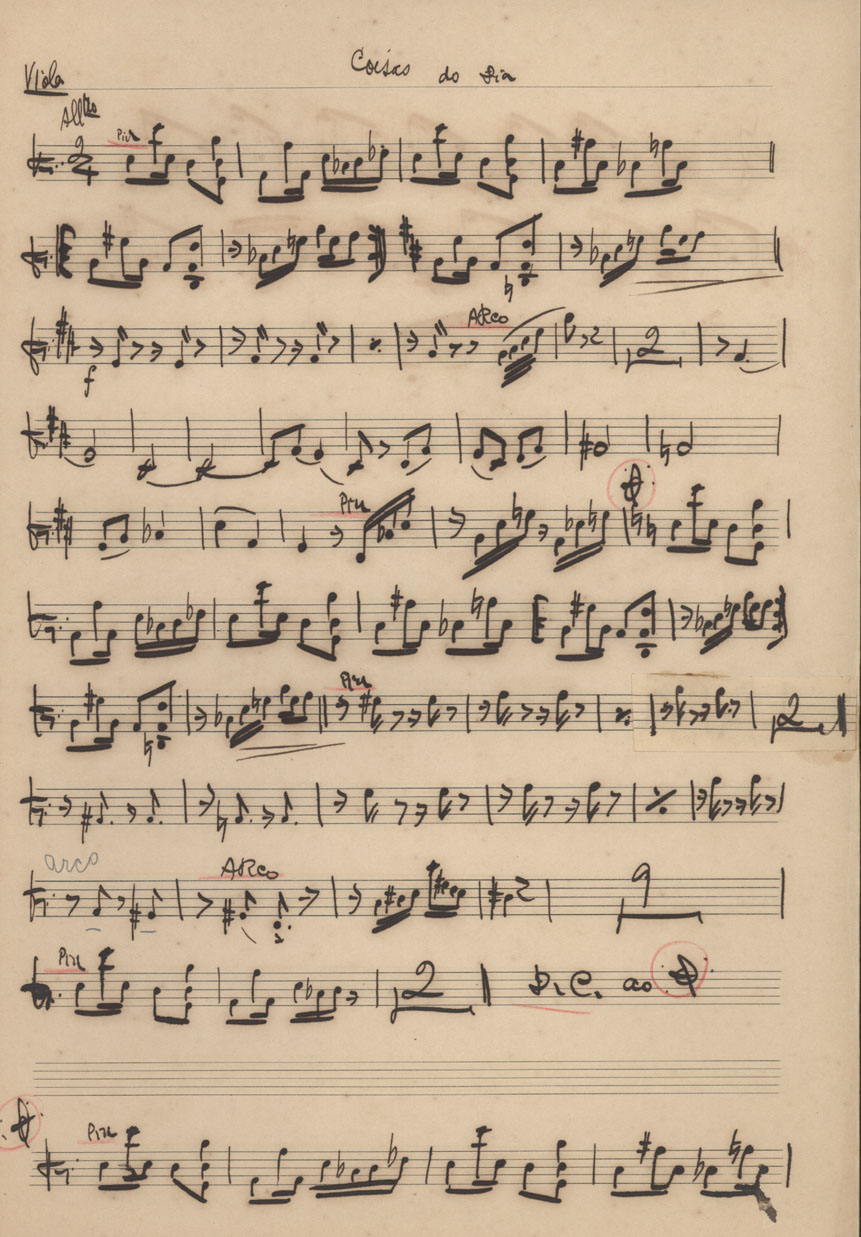 Viola
Coisas do Dia
Alltto
2/4
Pizz
f
ARCO
2
Pizz
Pizz
2
arco
ARCO
9
Pizz
2
D.C. ao
Pizz